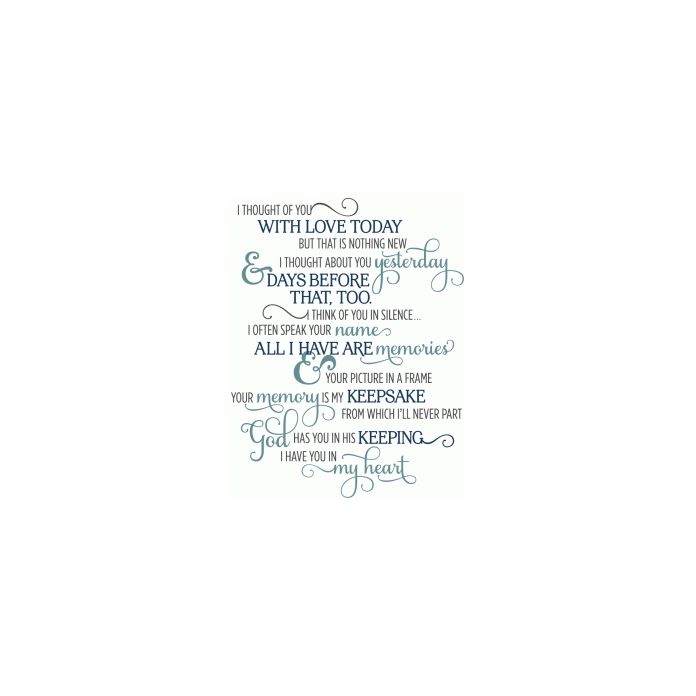 I THOUGHT OF YOU
WITH LOVE TODAY
BUT THAT IS NOTHING NEW
I THOUGHT ABOUT YOU yesterday
& DAYS BEFORE
THAT, TOO.
I THINK OF YOU IN SILENCE...
I OFTEN SPEAK YOUR name
ALL I HAVE ARE memories
& YOUR PICTURE IN A FRAME
YOUR memory IS MY KEEPSAKE
FROM WHICH I'LL NEVER PART
God HAS YOU IN HIS KEEPING
I HAVE YOU IN
my heart